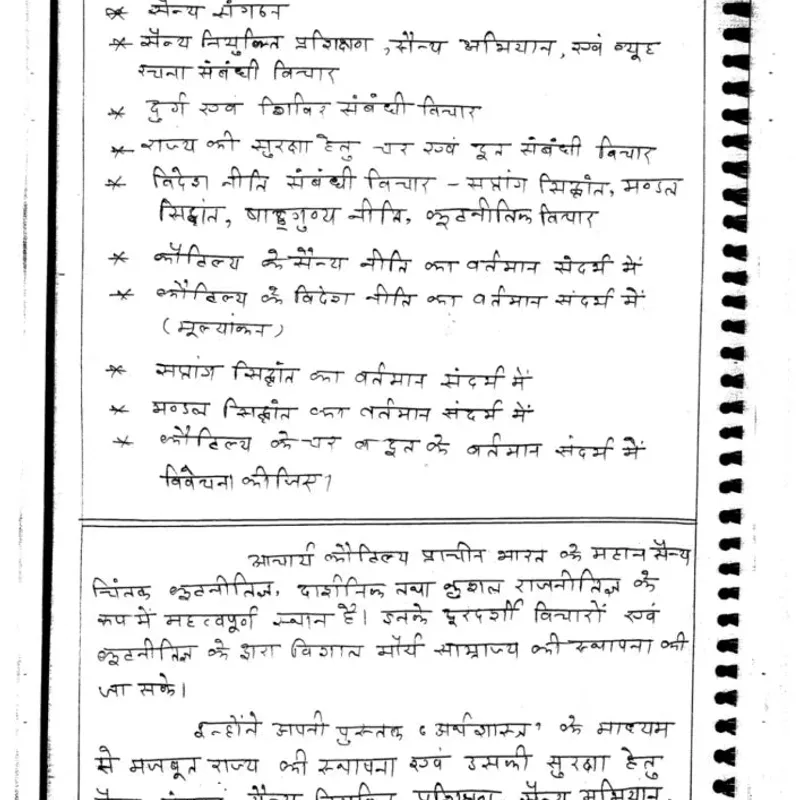 * सैन्य संगठन
* सैन्य नियुक्ति प्रशिक्षण, सैन्य अभियान, एवं व्यूह
रचना संबंधी विचार
* दुर्ग एवं शिविर संबंधी विचार
* राज्य की सुरक्षा हेतु चर एवं दूत संबंधी विचार
* विदेश नीति संबंधी विचार - सप्तांग सिद्धांत, मण्डल
सिद्धांत, षाड्गुण्य नीति, कूटनीतिक विचार
* कौटिल्य के सैन्य नीति का वर्तमान संदर्भ में
* कौटिल्य के विदेश नीति का वर्तमान संदर्भ में
(मूल्यांकन)
* सप्तांग सिद्धांत का वर्तमान संदर्भ में
* मण्डल सिद्धांत का वर्तमान संदर्भ में
* कौटिल्य के चर व दूत के वर्तमान संदर्भ में
विवेचना कीजिए।
आचार्य कौटिल्य प्राचीन भारत के महान सैन्य
चिंतक कूटनीतिज्ञ, दार्शनिक तथा कुशल राजनीतिज्ञ के
रूप में महत्वपूर्ण स्थान है। इनके दूरदर्शी विचारों एवं
कूटनीतिज्ञ के द्वारा विशाल मौर्य साम्राज्य की स्थापना की
जा सके।
इन्होंने अपनी पुस्तक 'अर्थशास्त्र' के माध्यम
से मजबूत राज्य की स्थापना एवं उसकी सुरक्षा हेतु
प्रशिक्षण, सैन्य अभियान,